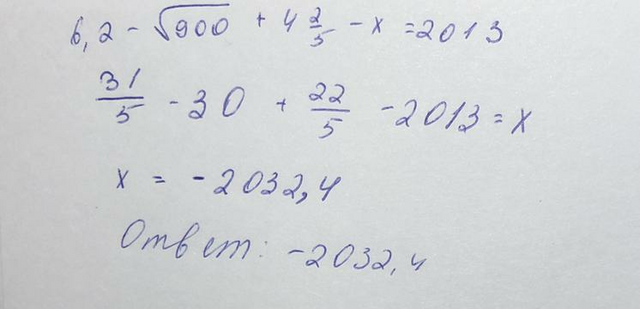 6,2 - √900 + 4 2/5 - x = 2013
31/5 - 30 + 22/5 - 2013 = x
x = - 2032,4
Ответ: -2032,4